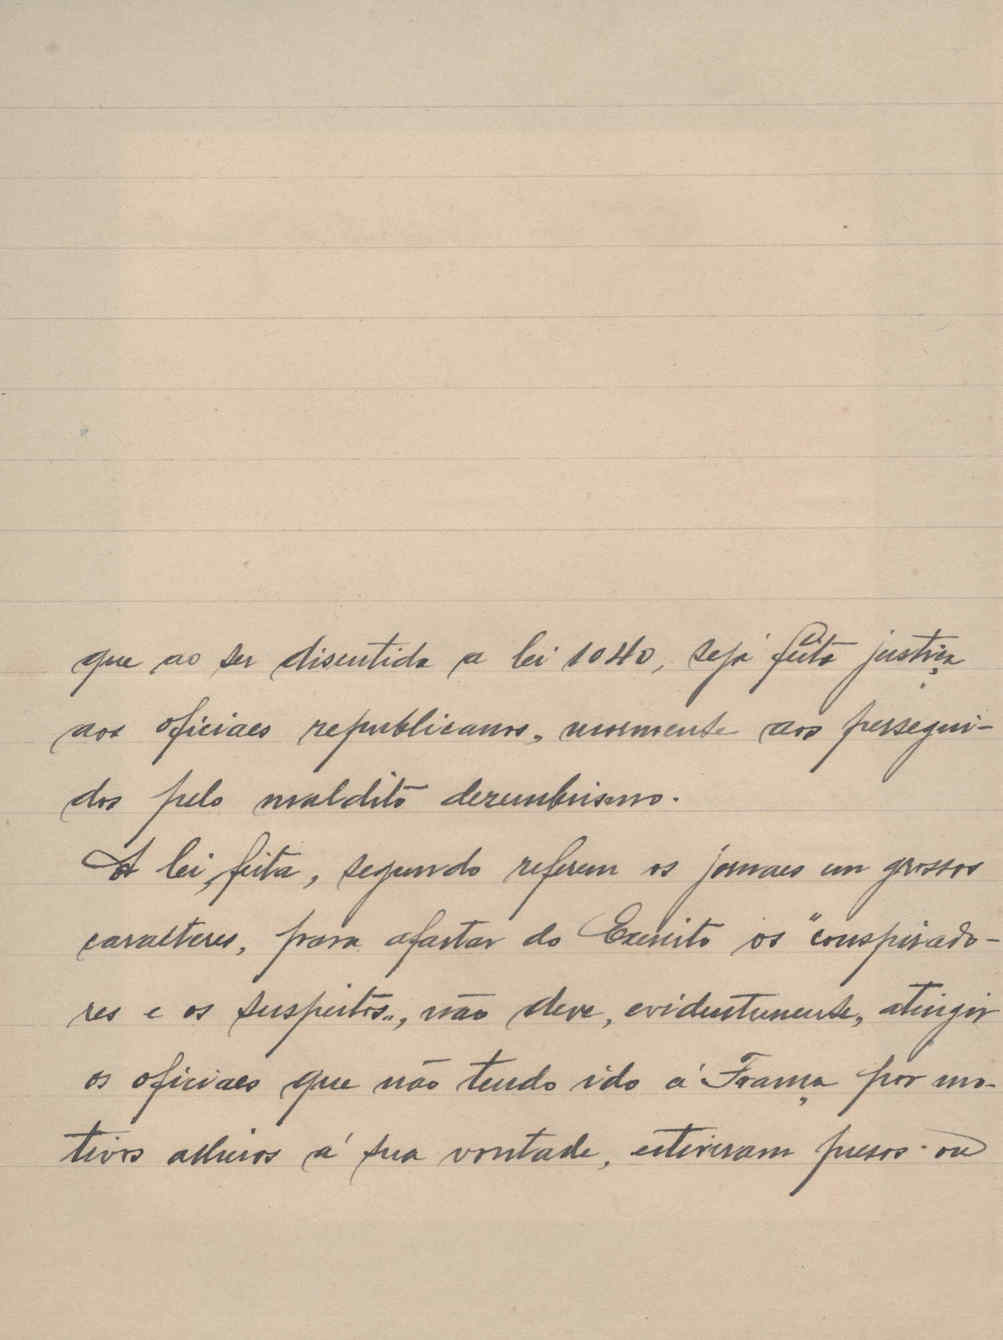 que ao ser discutida a lei 1040, seja feita justiça
aos oficiaes republicanos, mormente aos persegui-
dos pelo maldito dezembrismo.
A lei, feita, segundo referem os jornaes em grossos
caracteres, para afastar do Exercito os "conspirado-
res e os suspeitos", não deve, evidentemente, atingir
os oficiaes que não tendo ido á França por mo-
tivos alheios á sua vontade, estiveram presos ou